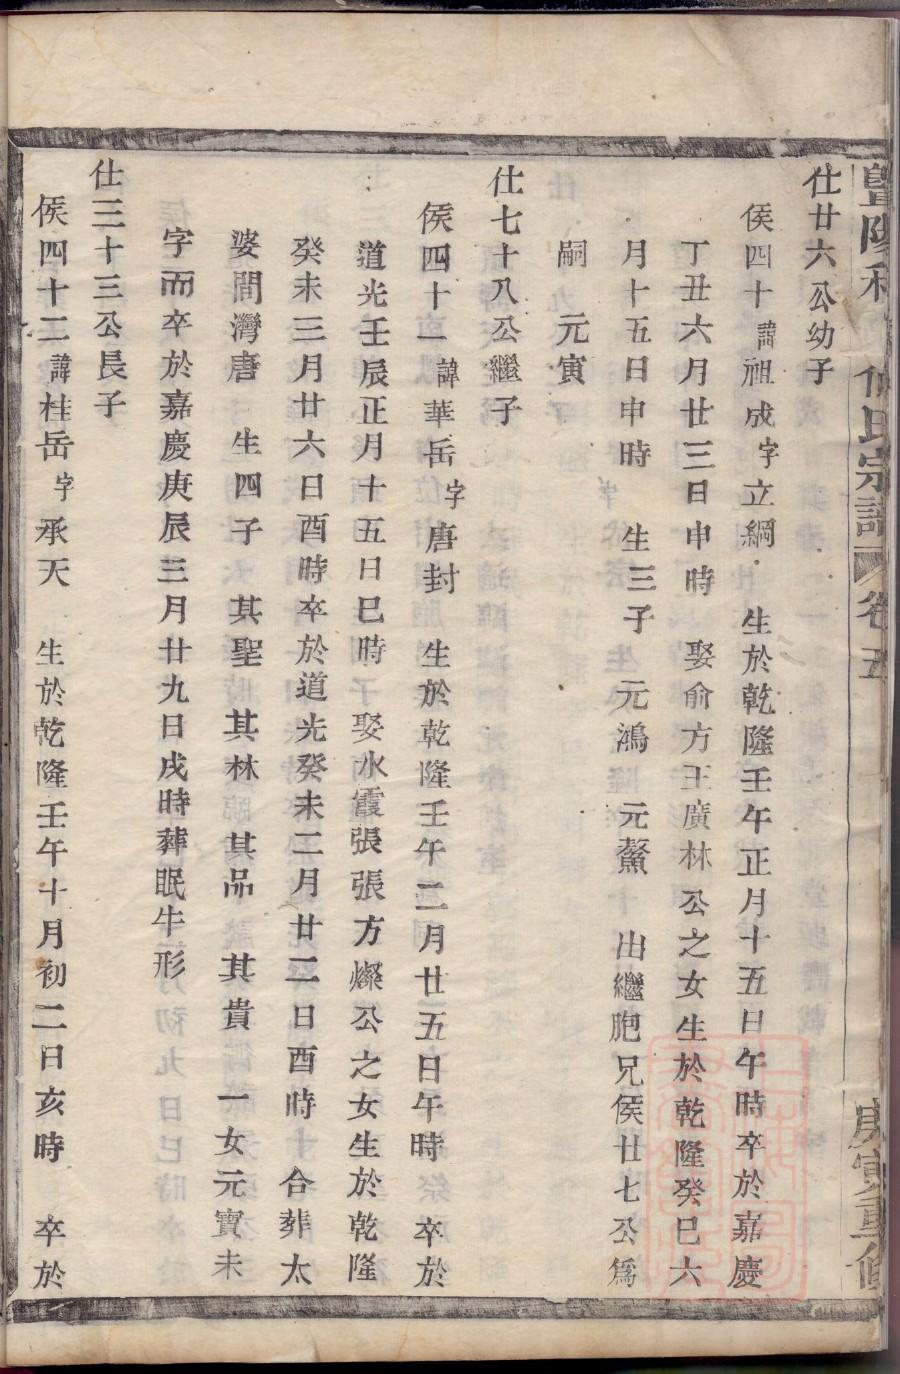 仕廿六公幼子
侯四十諱祖成字立綱 生於乾隆壬午正月十五日午時卒於嘉慶
丁丑六月廿三日申時 娶俞方王廣林公之女生於乾隆癸巳六
月十五日申時 生三子 元鴻 元鰲 出繼胞兄侯廿七公爲
嗣 元寅
仕七十八公繼子
侯四十一諱華岳字唐封 生於乾隆壬午二月廿五日午時 卒於
道光壬辰正月十五日巳時 娶水霞張張方燦公之女生於乾隆
癸未三月廿六日酉時卒於道光癸未二月廿二日酉時 合葬太
婆間灣唐 生四子 其聖 其林 其品 其貴 一女元寶未
字而卒於嘉慶庚辰三月廿九日戌時葬眠牛形
仕三十三公長子
侯四十二諱桂岳字承天 生於乾隆壬午十月初二日亥時 卒於
暨陽 氏宗譜 卷五 庚寅重修